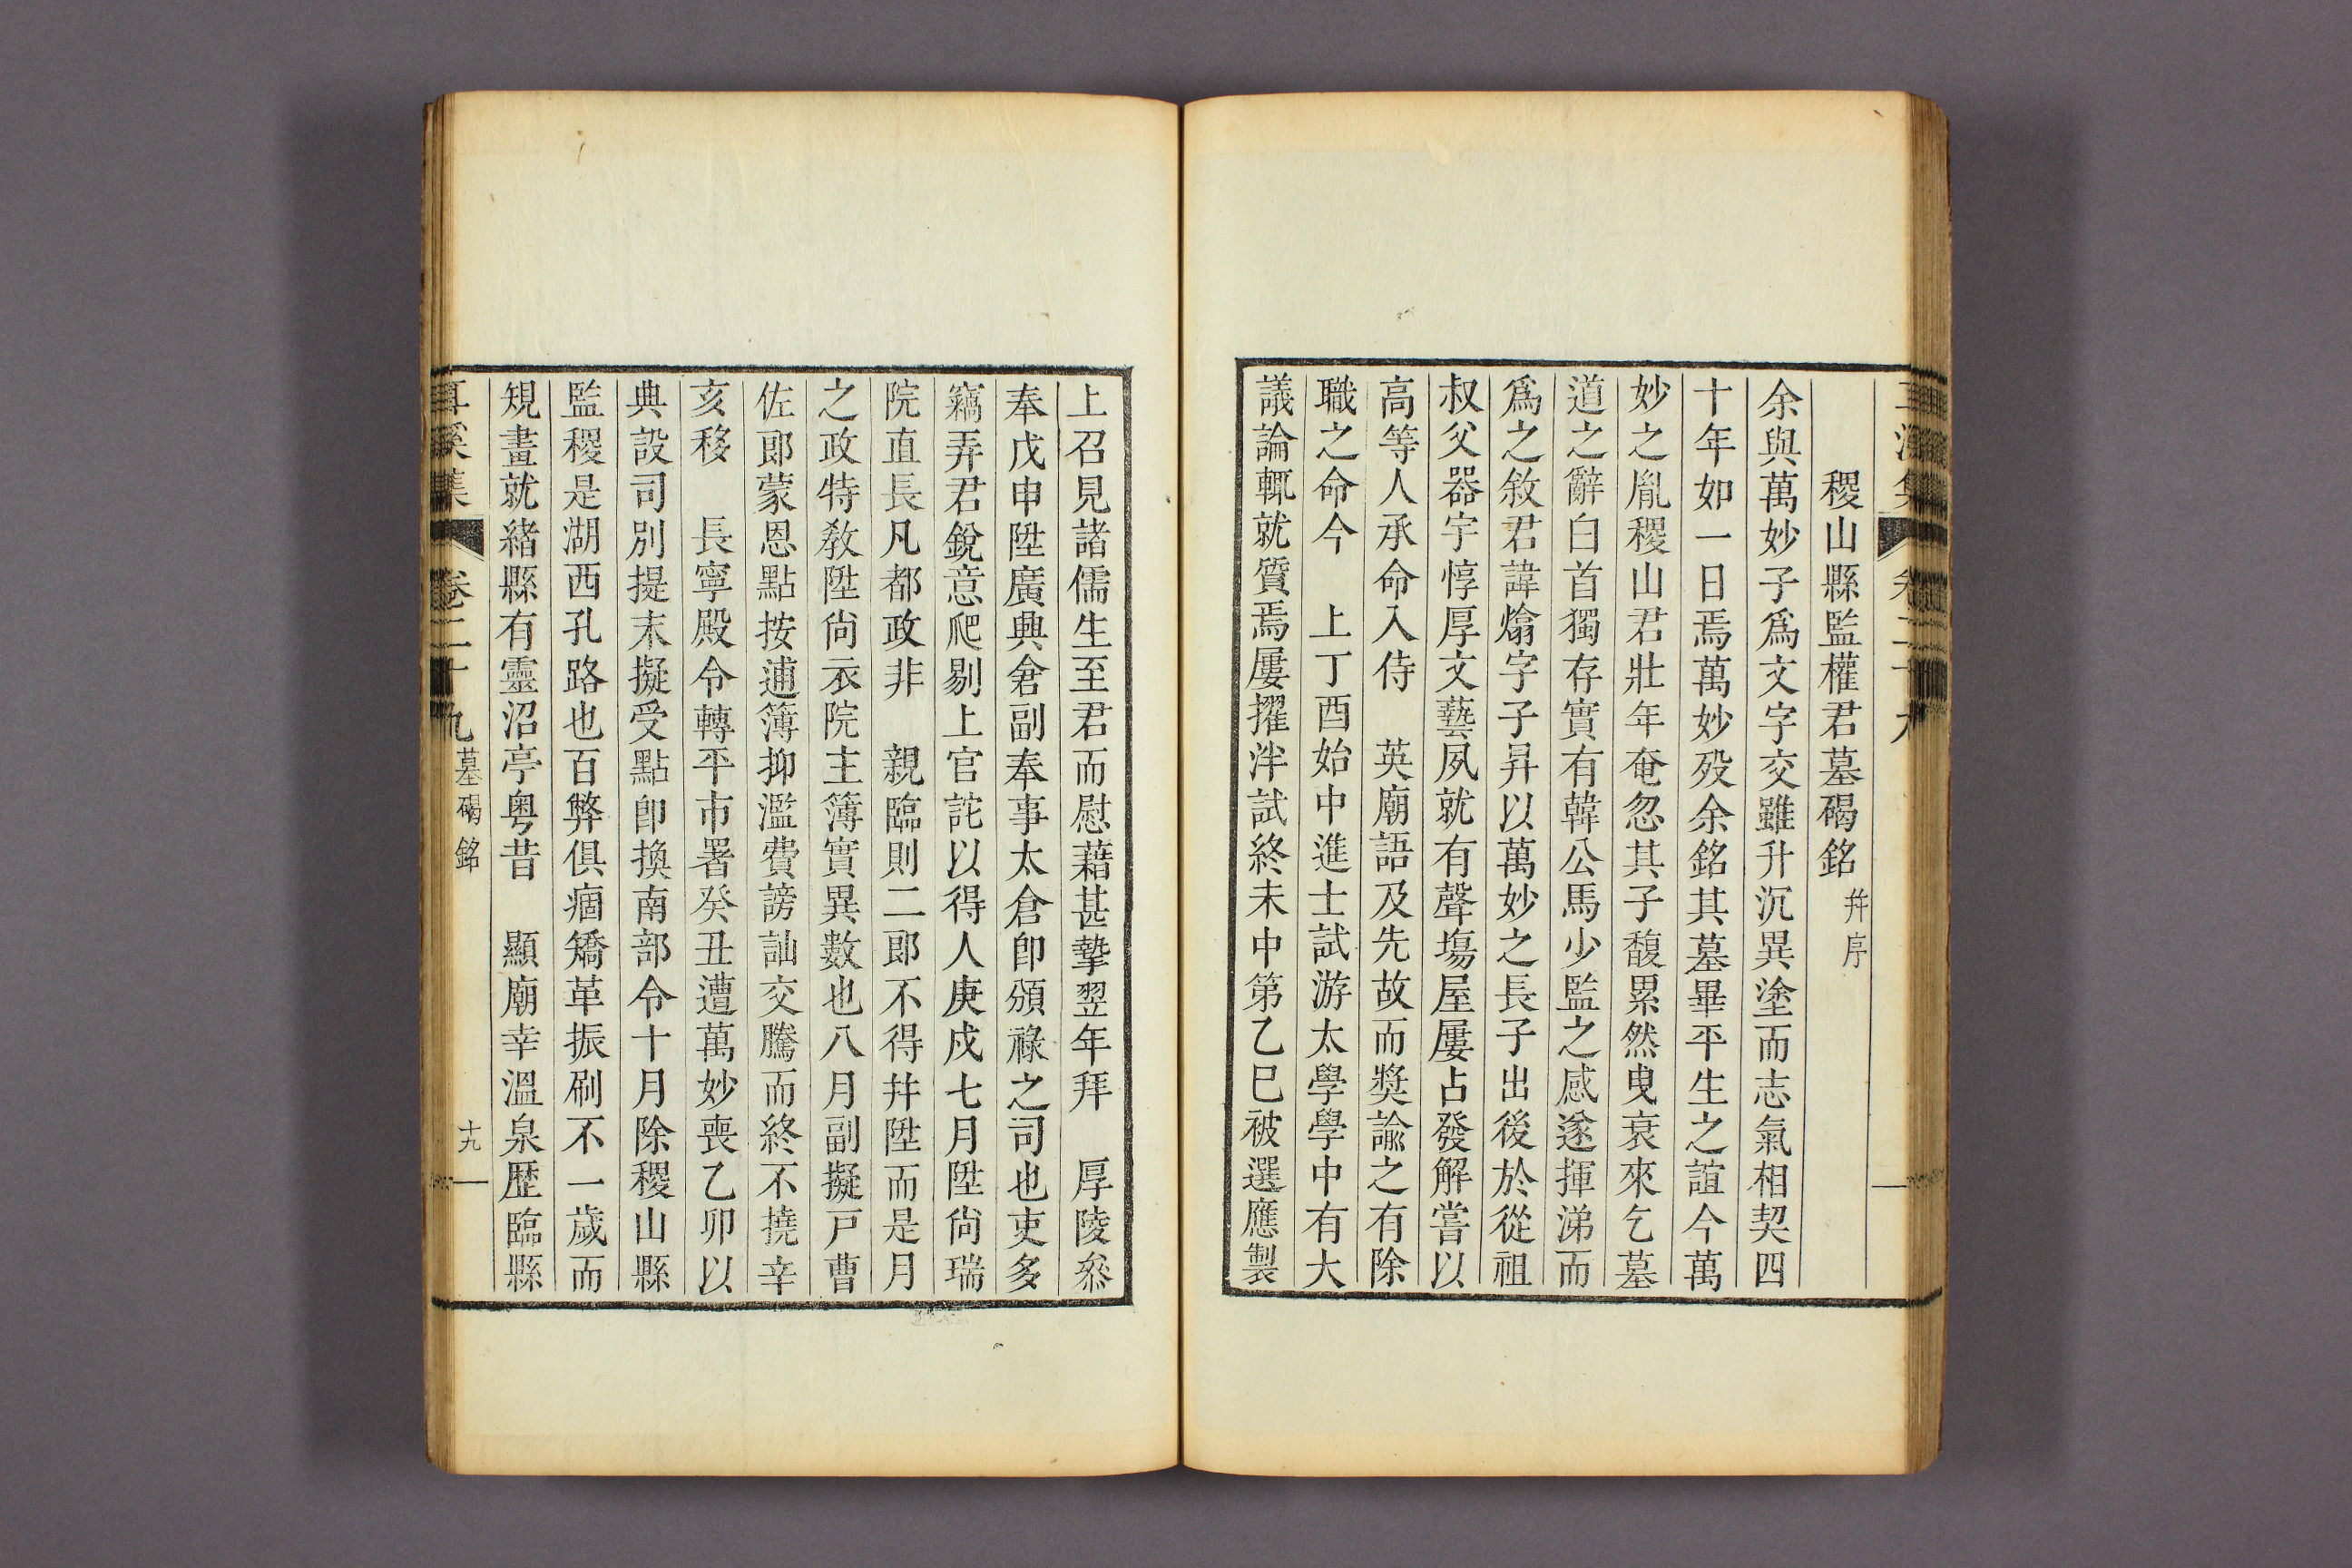 稷山縣監權君墓碣銘 幷序
余與萬妙子爲文字交雖升沉異塗而志氣相契四
十年如一日焉萬妙歿余銘其墓畢平生之誼今萬
妙之胤稷山君壯年奄忽其子馥累然曳衰來乞墓
道之辭白首獨存實有韓公馬少監之感遂揮涕而
爲之敘君諱熻字子昇以萬妙之長子出後於從祖
叔父器宇惇厚文藝夙就有聲塲屋屢占發解嘗以
高等人承命入侍 英廟語及先故而獎諭之有除
職之命今 上丁酉始中進士試游太學學中有大
議論輒就質焉屢擢泮試終未中第乙巳被選應製
上召見諸儒生至君而慰藉甚摯翌年拜 厚陵叅
奉戊申陞廣興倉副奉事太倉卽頒祿之司也吏多
竊弄君銳意爬剔上官詫以得人庚戍七月陞尙瑞
院直長凡都政非 親臨則二郞不得幷陞而是月
之政特敎陞尙衣院主簿實異數也八月副擬戶曹
佐郞蒙恩點按逋簿抑濫費謗訕交騰而終不撓辛
亥移 長寧殿令轉平市署癸丑遭萬妙喪乙卯以
典設司別提末擬受點卽換南部令十月除稷山縣
監稷是湖西孔路也百弊俱痼矯革振刷不一歲而
規畫就緖縣有靈沼亭粤昔 顯廟幸溫泉歷臨縣
耳溪集 卷二十九 墓碣銘 十九